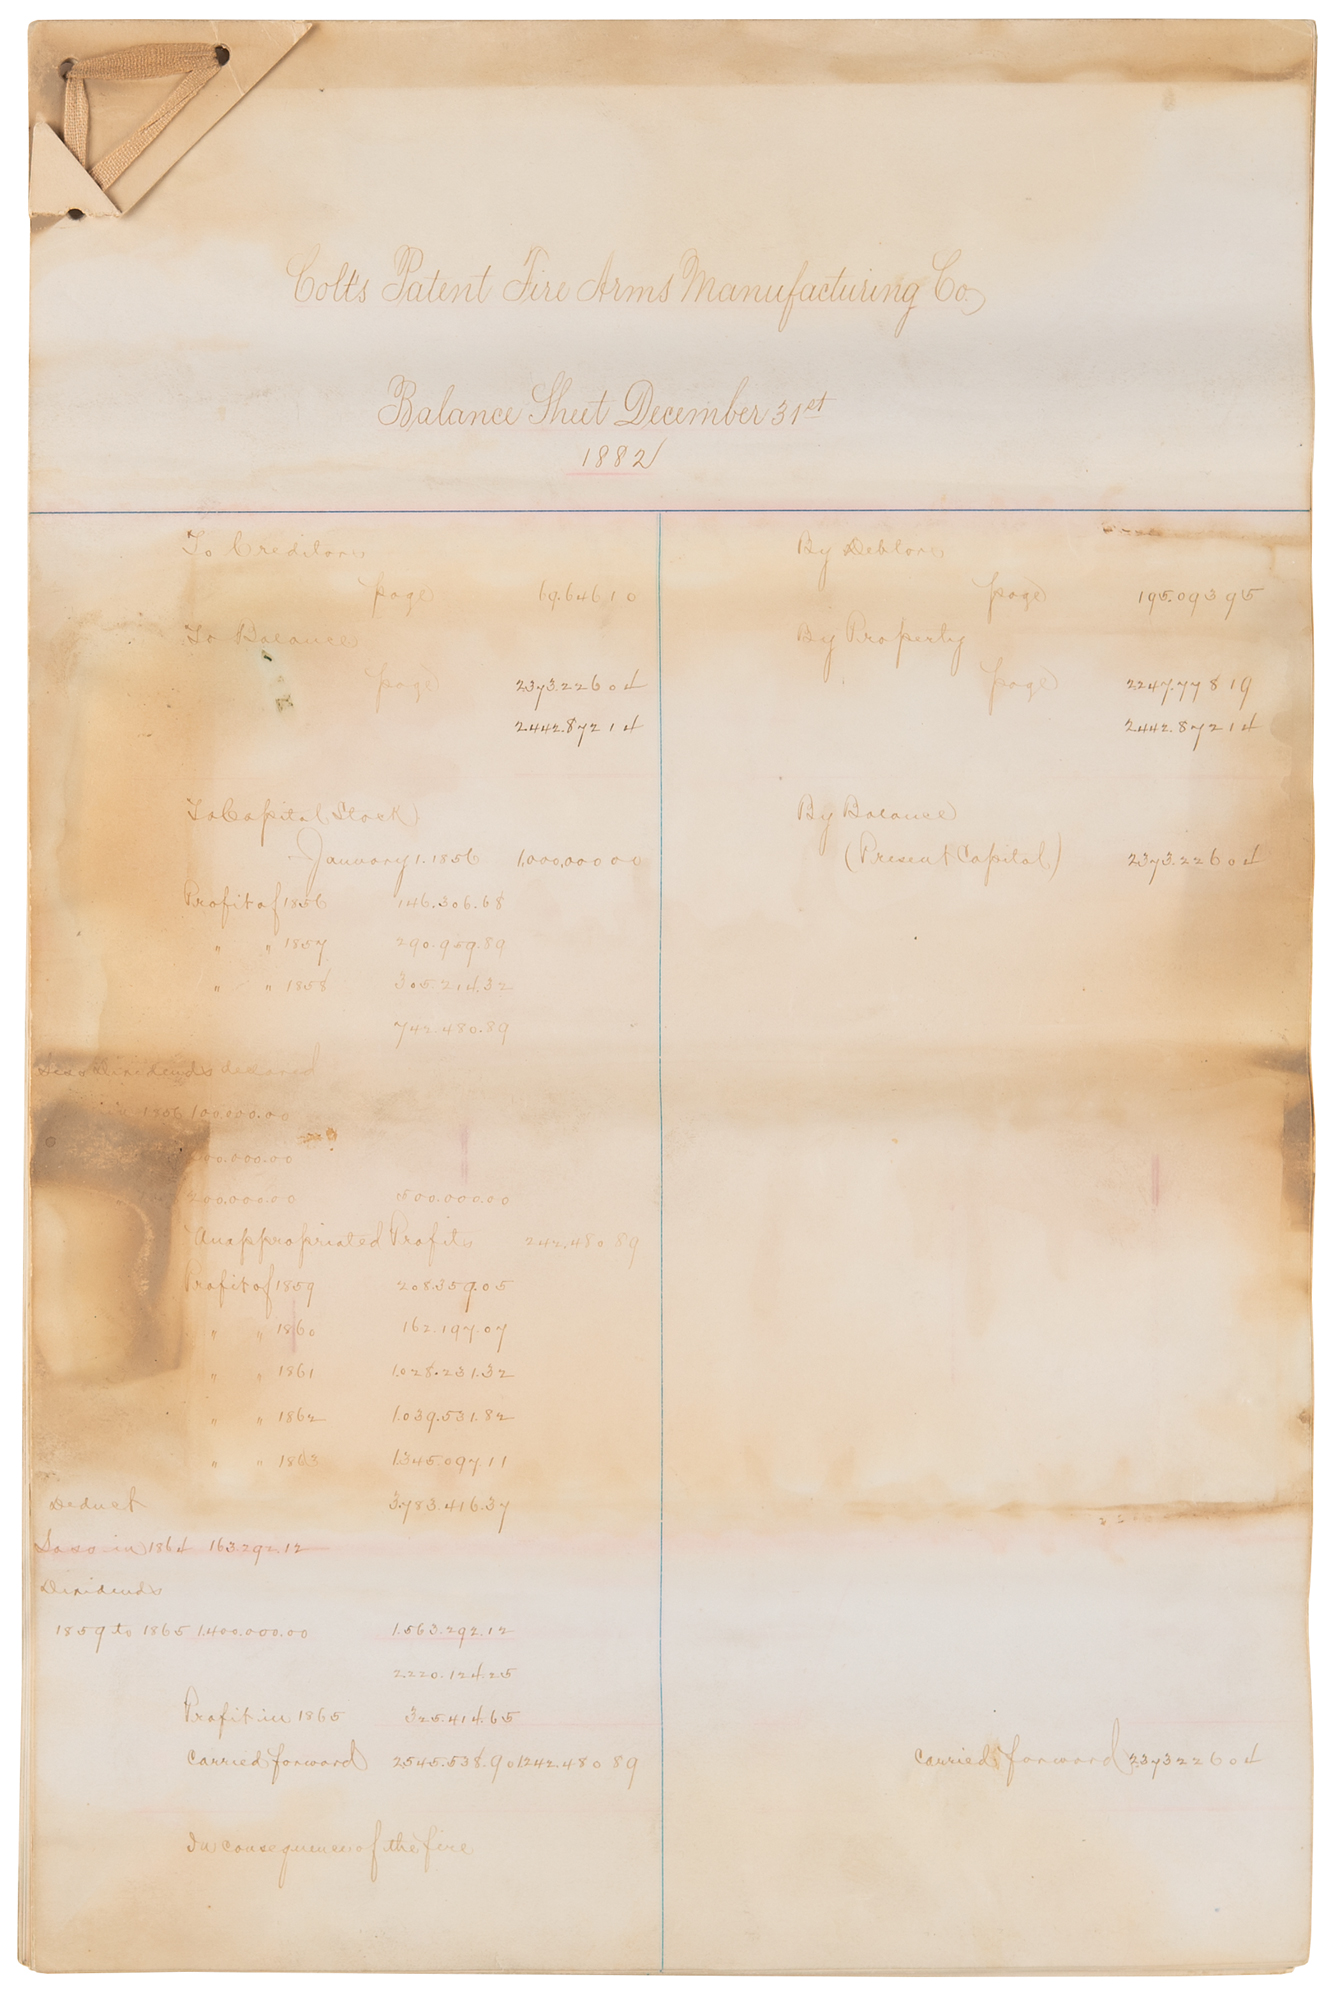 Colts Patent Fire Arms Manufacturing Co.
Balance Sheet December 31st
1882
To Creditors
page 69.646 10
To Balance
page 2373.226 04
2442.872 14
To Capital (Stock)
January 1. 1856 1,000,000 00
Profit of 1856 146.306.68
" " 1857 290.959.89
" " 1858 305.214.32
742.480.89
Less Dividends declared
in 1856 100.000.00
200.000.00
200.000.00 500.000.00
Unappropriated Profits 242.480 89
Profit of 1859 208.359.05
" " 1860 162.197.07
" " 1861 1.028.231.32
" " 1862 1.039.531.82
" " 1863 1.345.097 11
Deduct 3.783.416.37
Loss in 1864 163.292.12
Dividends
1859 to 1865 1.400.000.00 1.563.292.12
2.220.124.25
Profit in 1865 325.414.65
Carried forward 2.545.538.90 1242.480 89
In consequence of the fire
By Debtors
page 195.093 95
By Property
page 2247.778 19
2442.872 14
By Balance
(Present Capital) 2373.226 04
Carried forward 2373226 04